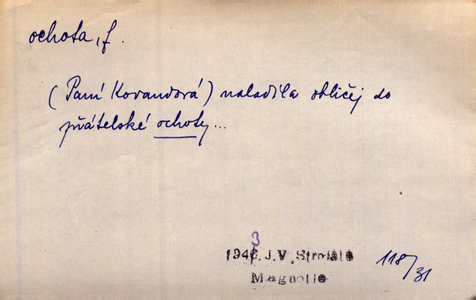 ochota, f.
(Paní Kovandová) naladila obličej do
přátelské ochoty...
3
1946 J.V.
Magnolie
118/31